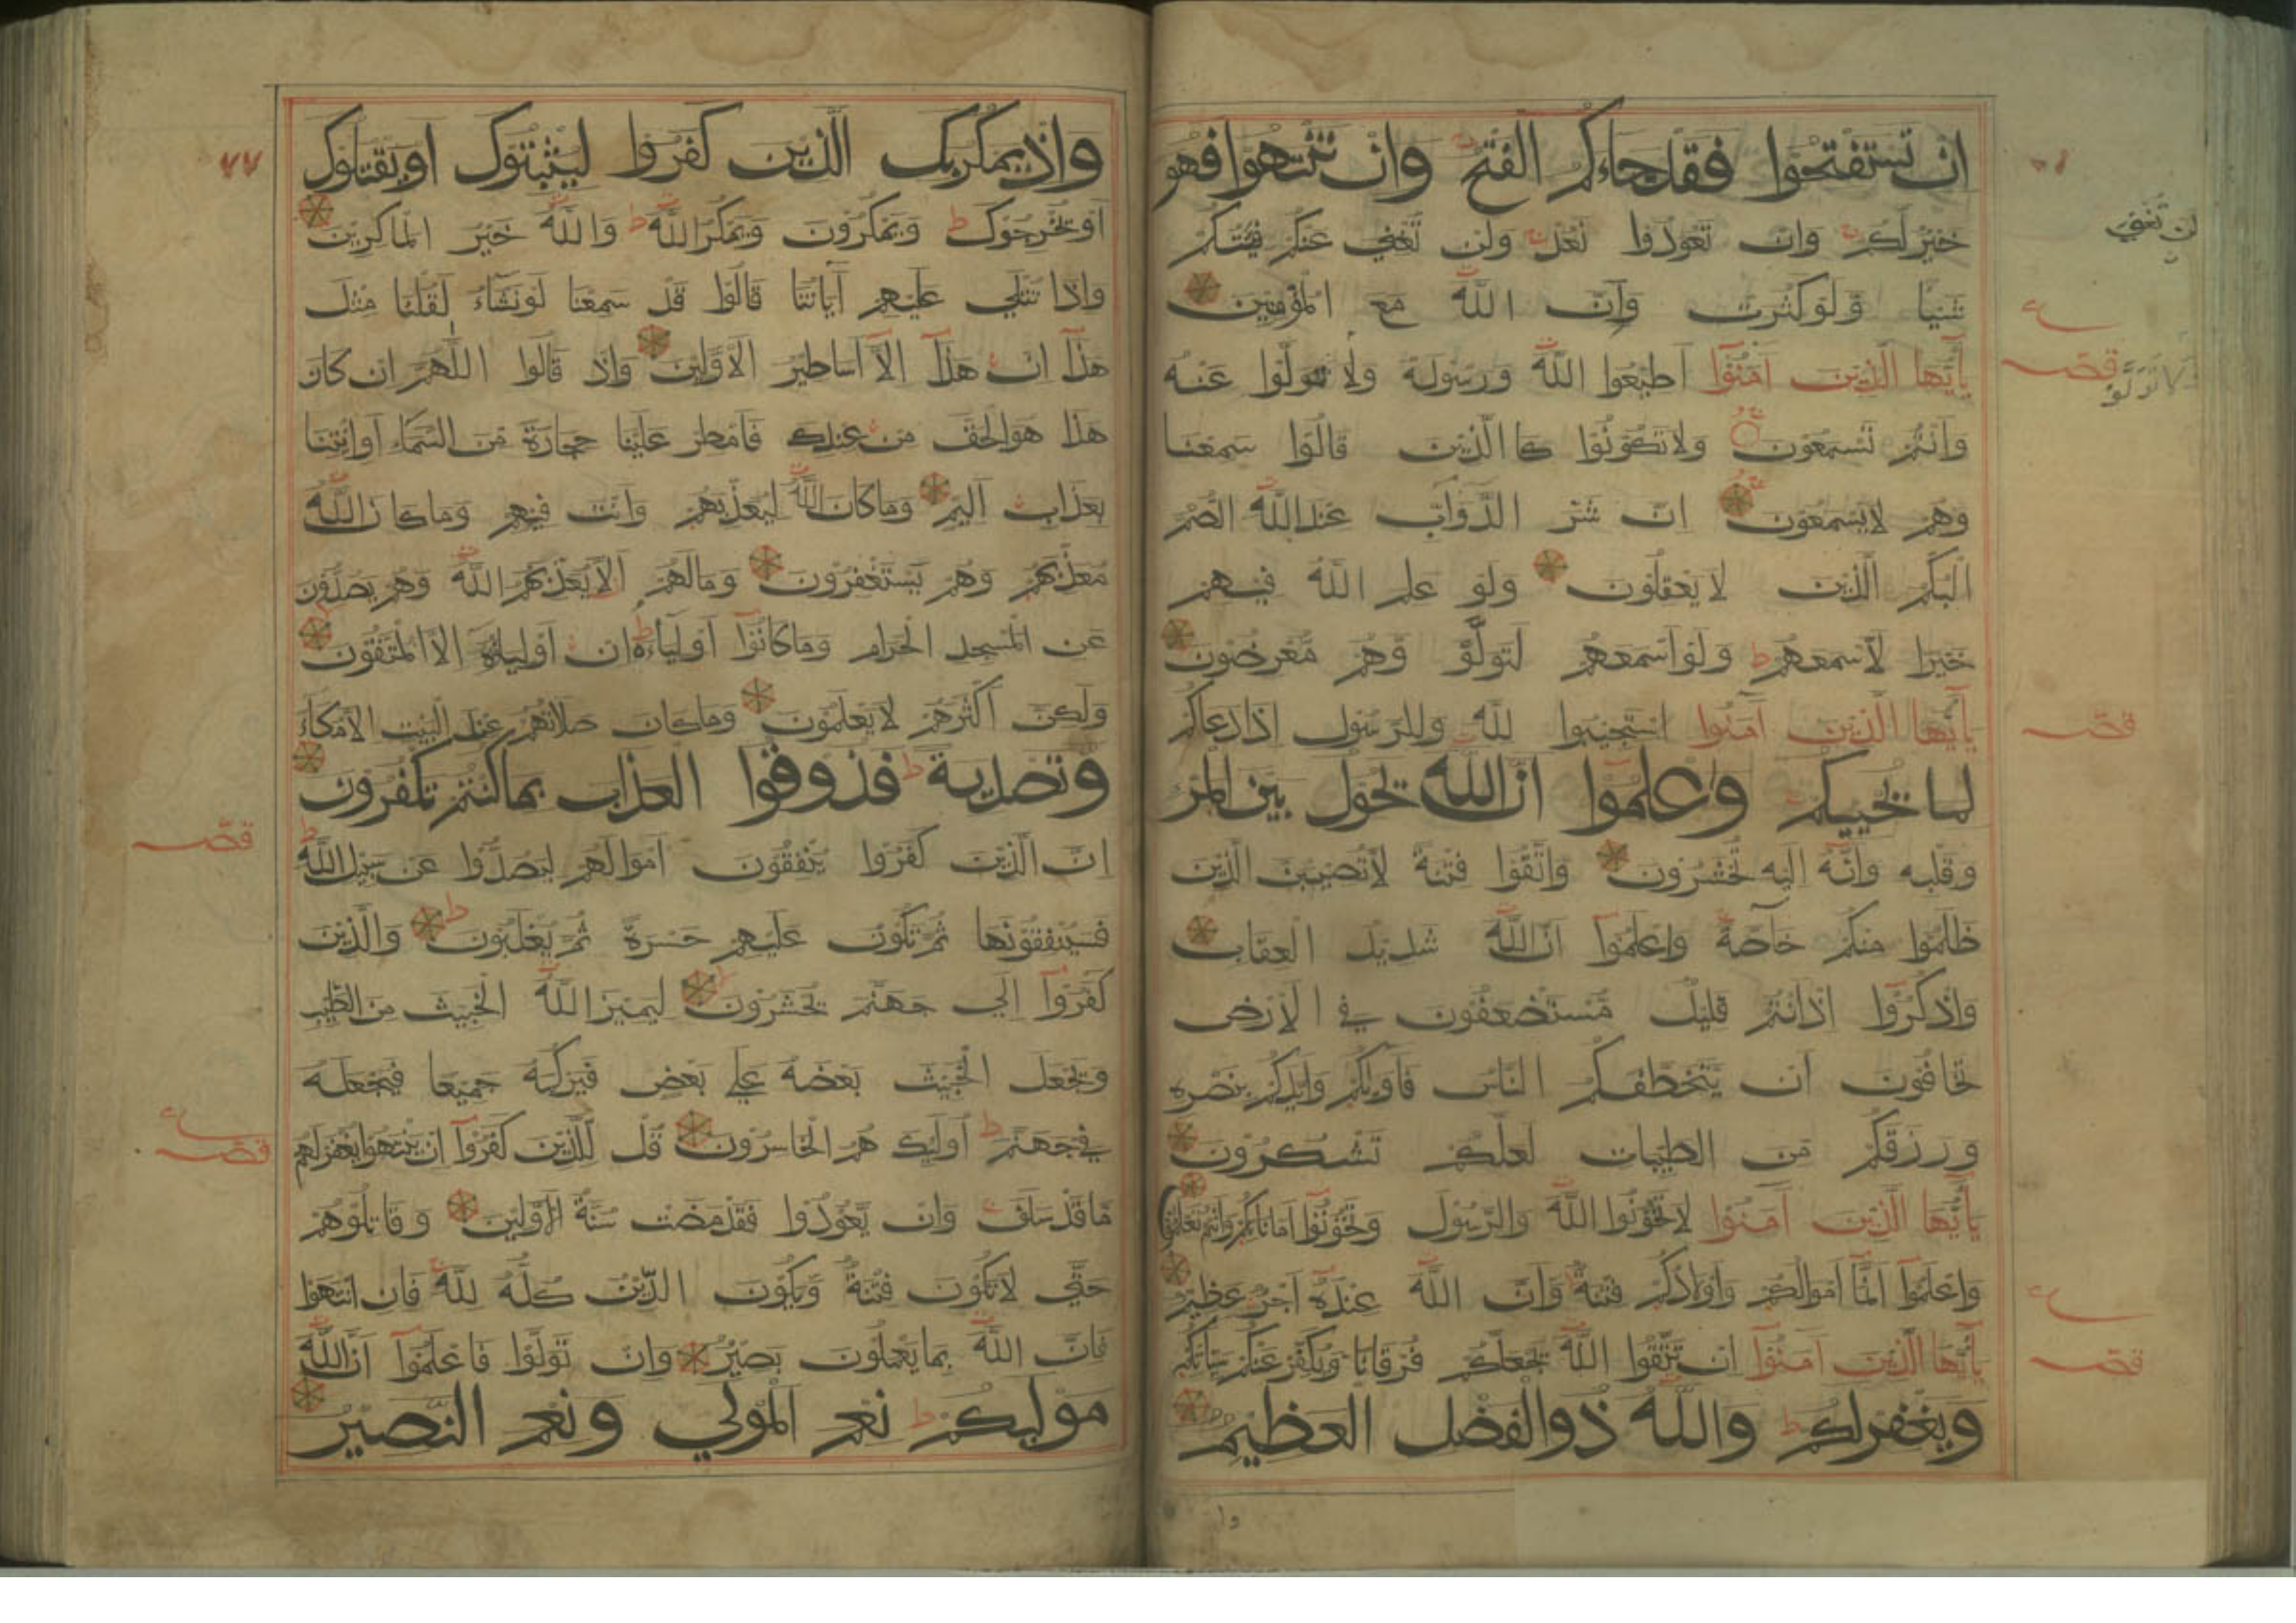 ان تستفتحوا فقد جاءكم الفتح وان تنتهوا فهو
خير لكم وان تعودوا نعد ولن تغني عنكم فئتكم
شيئا ولو كثرت وان الله مع المؤمنين
يا أيها الذين آمنوا اطيعوا الله ورسوله ولا تولوا عنه
وانتم تسمعون ولا تكونوا كا الذين قالوا سمعنا
وهم لا يسمعون ان شر الدواب عند الله الصم
البكم الذين لا يعقلون ولو علم الله فيهم
خيرا لاسمعهم ولو اسمعهم لتولو وهم معرضون
يا أيها الذين آمنوا استجيبوا لله وللرسول اذا دعاكم
لما يحييكم وعلموا ان الله يحول بين المرء
وقلبه وانه اليه تحشرون واتقوا فتنة لا تصيبن الذين
ظلموا منكم خاصة واعلموا ان الله شديد العقاب
واذكروا اذ انتم قليل مستضعفون في الارض
تخافون ان يتخطفكم الناس فاويكم وايدكم بنصره
ورزقكم من الطيبات لعلكم تشكرون
يا أيها الذين آمنوا لا تخونوا الله والرسول وتخونوا اماناتكم وانتم تعلمون
واعلموا انما اموالكم واولادكم فتنة وان الله عنده اجر عظيم
يا أيها الذين آمنوا ان تتقوا الله يجعل لكم فرقانا ويكفر عنكم سياتكم
ويغفر لكم والله ذو الفضل العظيم
وا
لن تغني
قصـ
لا تولو
قصـ
قصـ
واذ يمكر بك الذين كفروا ليثبتوك او يقتلوك
او يخرجوك ويمكرون ويمكر الله والله خير الماكرين
واذا تتلي عليهم آياتنا قالوا قد سمعنا لو نشاء لقلنا مثل
هذا ان هذا الا اساطير الاولين واذ قالوا اللهم ان كان
هذا هو الحق من عندك فامطر علينا حجارة من السماء او ائتنا
بعذاب اليم وما كان الله ليعذبهم وانت فيهم وما كان الله
معذبهم وهم يستغفرون وما لهم الا يعذبهم الله وهم يصدون
عن المسجد الحرام وما كانوا اولياءه ان اولياؤه الا المتقون
ولكن اكثرهم لا يعلمون وما كان صلاتهم عند البيت الا مكاء
وتصدية فذوقوا العذاب بما كنتم تكفرون
ان الذين كفروا ينفقون اموالهم ليصدوا عن سبيل الله
فسينفقونها ثم تكون عليهم حسرة ثم يغلبون والذين
كفروا الي جهنم يحشرون ليميز الله الخبيث من الطيب
ويجعل الخبيث بعضه علي بعض فيركمه جميعا فيجعله
في جهنم اوليك هم الخاسرون قل للذين كفروا ان ينتهوا يغفر لهم
ما قد سلف وان يعودوا فقد مضت سنة الاولين وقاتلوهم
حتي لا تكون فتنة ويكون الدين كله لله فان انتهوا
فان الله بما يعملون بصير وان تولوا فاعلموا ان الله
موليكم نعم المولي ونعم النصير
٧٧
قصـ
قصـ